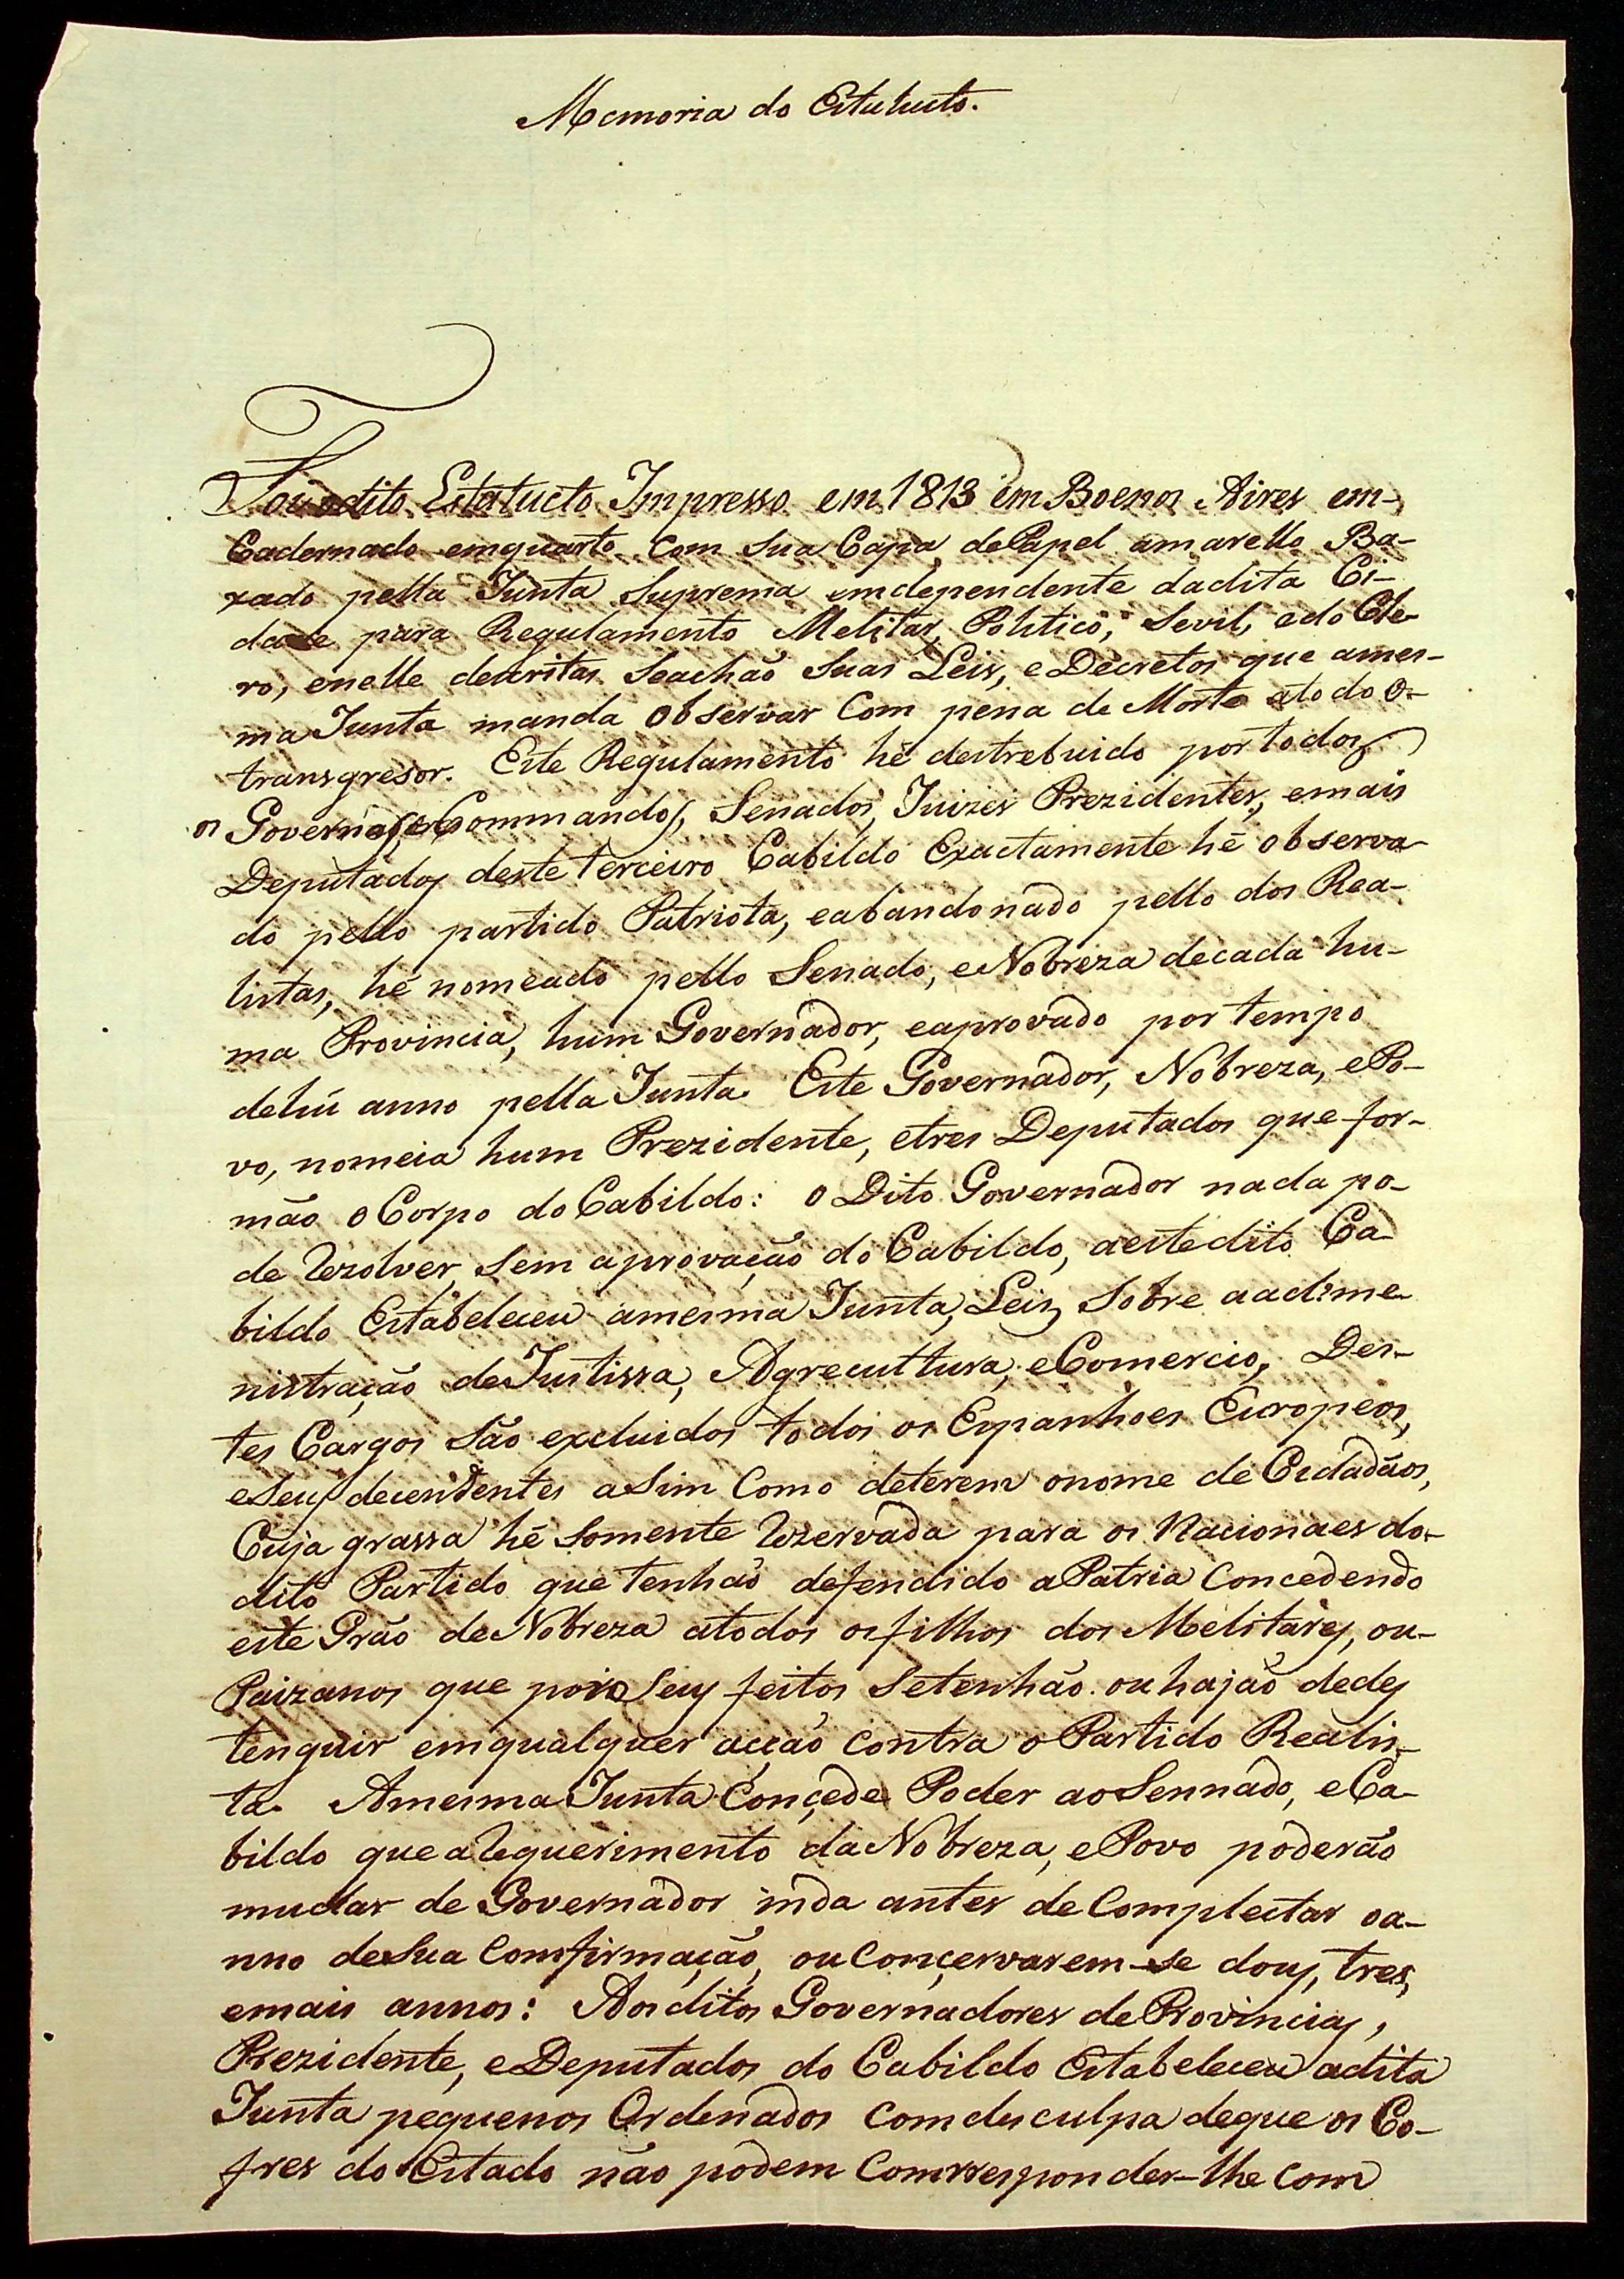 Memoria do Estatucto.
Foi odito Estatucto Impresso em 1813 em Boenos Aires em-
Cadernado emquarto com sua Capa dePapel amarello Ba-
xado pella Junta Suprema emdependente dadita Ci-
dade para Regulamento Melitar, Politico, Sevil, edo Cle-
ro, enelle descritas seachão suas Leis, e Decretos que ames-
ma Junta manda observar Com pena de Morte atodo o-
transgresor. Este Regulamento hé destrebuido portodos
os Governos, Commandos, Senados, Juizes Prezidentes, emais
Deputados deste terceiro Cabildo Exactamente hé observa-
do pello partido Patriota, eabandonado pello dos Rea-
listas, hé nomeado pello Senado, eNobreza decada hu-
ma Provincia, hum Governador, eaprovado por tempo
dehũ anno pella Junta. Este Governador, Nobreza, ePo-
vo, nomeia hum Prezidente, etres Deputados que for-
mão oCorpo doCabildo: o Dito Governador nada po-
de Rezolver, sem aprovação do Cabildo, aestedito Ca-
bildo Estabeleceu amesma Junta, Leis, sobre aadime-
nistração deJustissa, Agrecultura, eComercio, Des-
tes Cargos são excluidos todos os Espanhoes Europeos,
eseus decendentes asim Como deterem onome de Cidadãos,
Cuja grassa hé somente Rezervada para os Nacionaes do-
dito Partido que tenhão defendido aPatria Concedendo
este Grão deNobreza atodos osfilhos dos Melitares, ou-
Paizanos que por seus feitos setenhão ouhajão dedes
tenguir emqualquer acção contra o Partido Realis-
ta. Amesma Junta Conçede Poder aoSennado, eCa-
bildo quea Requerimento daNobreza, ePovo poderão
mudar de Governador inda antes deComplectar oa-
nno desua Comfirmação, ouConçervarem-se dous, tres,
emais annos: Aosditos Governadores deProvincias,
Prezidente, eDeputados do Cabildo Estabeleceu adita
Junta pequenos Ordenados comdesculpa deque os Co-
fres do Estado não podem Comrresponder-lhe com